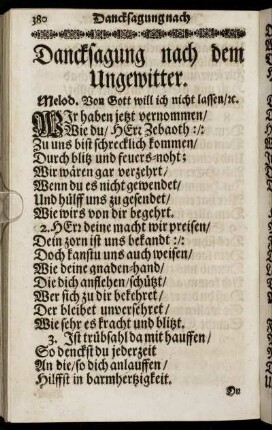 380 Dancksagung nach
Dancksagung nach dem
Ungewitter.
Melod. Von Gott will ich nicht lassen/ꝛc.
WIr haben jetzt vernommen/
Wie du/ HErꝛ Zebaoth :/:
Zu uns bist schrecklich kommen/
Durch blitz und feuers-noht;
Wir wären gar verzehrt/
Wenn du es nicht gewendet/
Und hülff uns zu gesendet/
Wie wirs von dir begehrt.
2. HErꝛ deine macht wir preisen/
Dein zorn ist uns bekandt :/:
Doch kanstu uns auch weisen/
Wie deine gnaden-hand/
Die dich anflehen/schützt/
Wer sich zu dir bekehret/
Der bleibet unversehret/
Wie sehr es kracht und blitzt.
3. Ist trübsahl da mit hauffen/
So denckst du jederzeit
An die/so dich anlauffen/
Hilffst in barmhertzigkeit.
Du